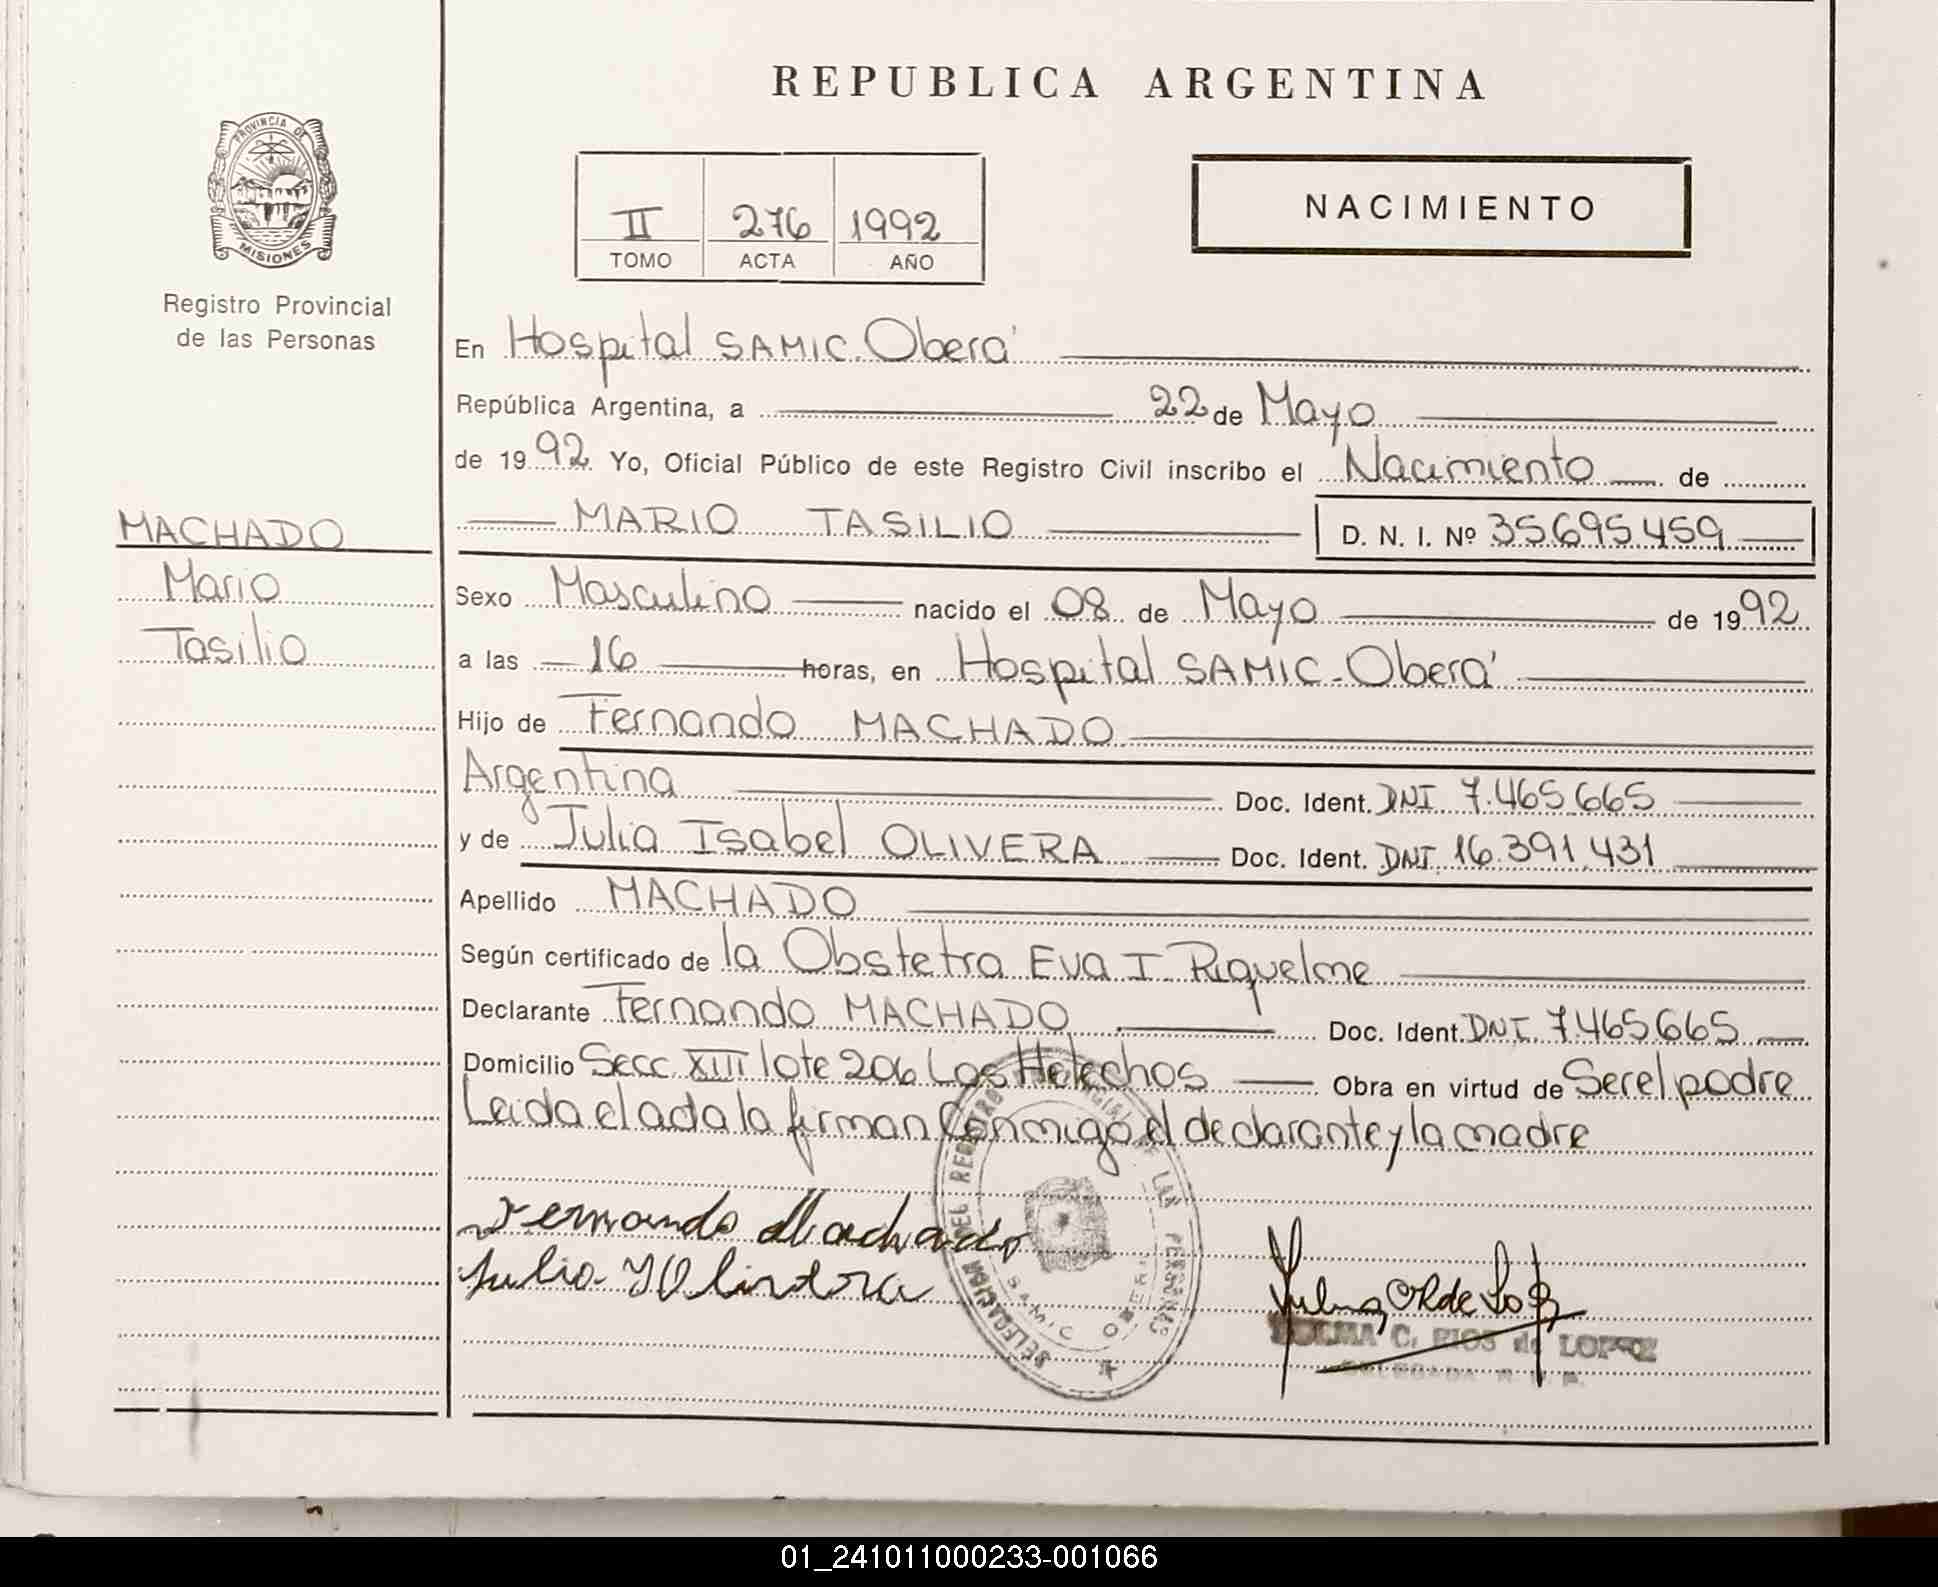 REPUBLICA ARGENTINA
PROVINCIA DE
MISIONES
Registro Provincial
de las Personas
II 276 1992
TOMO ACTA AÑO
NACIMIENTO
MACHADO
Mario
Tasilio
En Hospital SAMIC. Oberá
República Argentina, a 22 de Mayo
de 1992. Yo, Oficial Público de este Registro Civil inscribo el Nacimiento de
MARIO TASILIO D. N. I. Nº 35.695.459
Sexo Masculino nacido el 08 de Mayo de 1992
a las 16 horas, en Hospital SAMIC - Oberá
Hijo de Fernando MACHADO
Argentina Doc. Ident. DNI 7.465.665
y de Julia Isabel OLIVERA Doc. Ident. DNI. 16.391.431
Apellido MACHADO
Según certificado de la Obstetra Eva I. Riquelme
Declarante Fernando MACHADO Doc. Ident. DNI. 7.465.665
Domicilio Secc. XIII lote 206 Los Helechos Obra en virtud de Ser el padre
Leida el acta la firman Conmigo el declarante y la madre
Fernando Machado
DELEGACION DEL REGISTRO PROVINCIAL DE LAS PERSONAS
SAMIC OBERA
C. RIOS de LOPEZ
DELEGADA R. P. P.
01_241011000233-001066